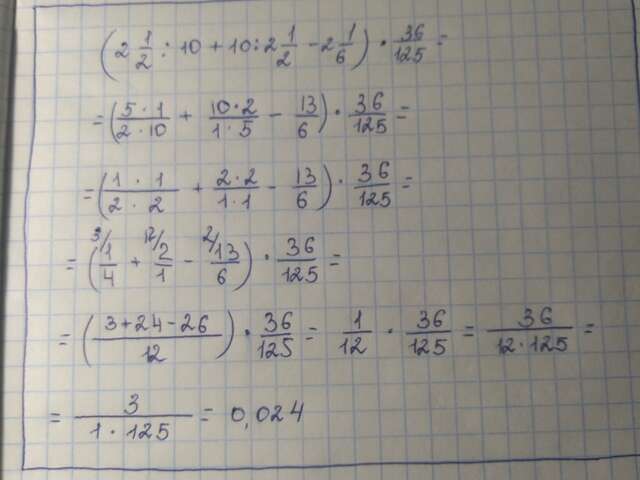 (2 1/2 : 10 + 10 : 2 1/2 - 2 1/6) · 36/125 =
= (5·1/2·10 + 10·2/1·5 - 13/6) · 36/125 =
= (1·1/2·2 + 2·2/1·1 - 13/6) · 36/125 =
= (3/ 1/4 + 12/ 2/1 - 2/ 13/6) · 36/125 =
= (3+24-26/12) · 36/125 = 1/12 · 36/125 = 36/12·125 =
= 3/1·125 = 0,024